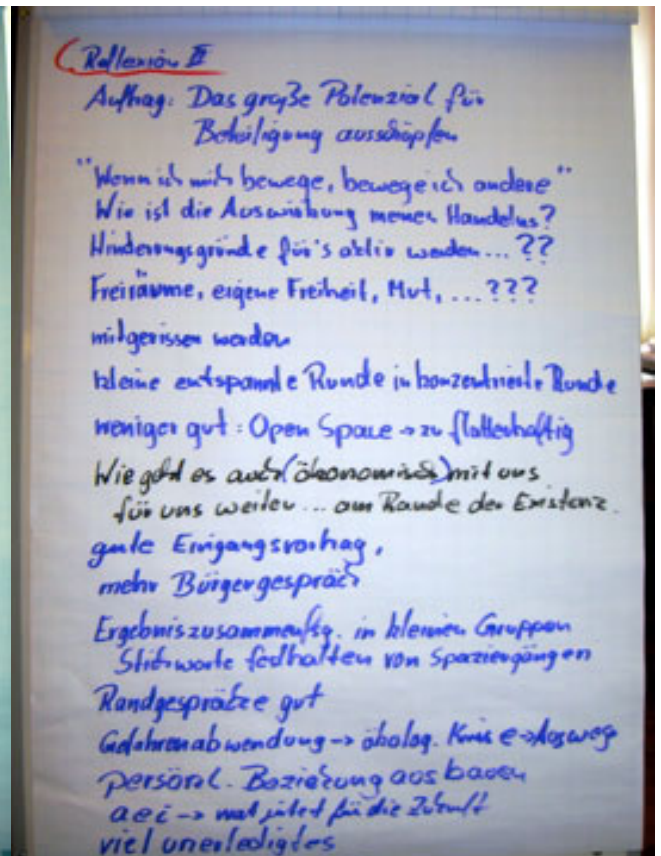 Reflexion III
Auftrag: Das große Potenzial für
Beteiligung ausschöpfen
"Wenn ich mich bewege, bewege ich andere"
Wie ist die Auswirkung meines Handelns?
Hinderungsgründe für's aktiv werden... ??
Freiräume, eigene Freiheit, Mut, ... ???
mitgerissen werden
kleine entspannte Runde in konzentrierte Runde
weniger gut: Open Space → zu flatterhaftig
Wie geht es auch (ökonomisch) mit uns
für uns weiter ... am Rande der Existenz.
gute Eingangsvortrag,
mehr Bürgergespräch
Ergebniszusammenfsg. in kleinen Gruppen
Stichworte festhalten von Spaziergängen
Randgespräche gut
Gefahrenabwendung → ökolog. Krise → Auswege
persönl. Beziehung ausbauen
für die Zukunft
viel unerledigtes